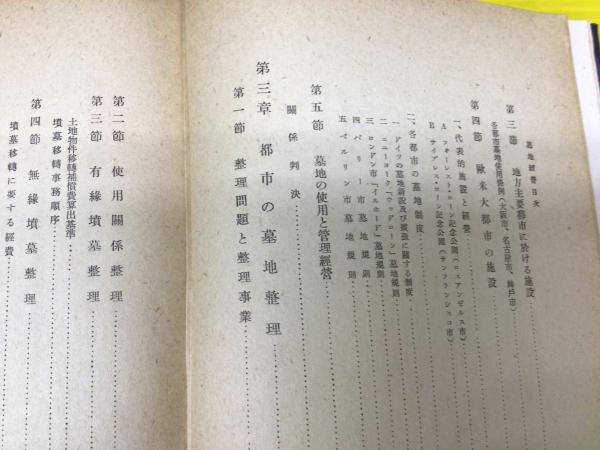 墓地經營目次
第三節 地方主要都市に於ける施設
各都市墓地使用條例(大阪市、名古屋市、神戸市)
第四節 歐米大都市の施設
一、代表的施設と經營
A フオーレスト・ローン記念公園(ロスアンゼルス市)
B サイプレス・ローン記念公園(サンフランシスコ市)
二、各都市の墓地制度
一 ドイツの墓地新設及び擴張に關する制度
二 ニユーヨーク「ウッドローン」墓地規則
三 ロンドン市「イルホード」墓地規則
四 パリー市墓地規則
五 ベルリン市墓地規則
第五節 墓地の使用と管理經營
關係判決
第三章 都市の墓地整理
第一節 整理問題と整理事業
第二節 使用關係整理
第三節 有緣墳墓整理
土地物件移轉補償費算出基準
墳墓移轉事務順序
第四節 無緣墳墓整理
墳墓移轉に要する經費